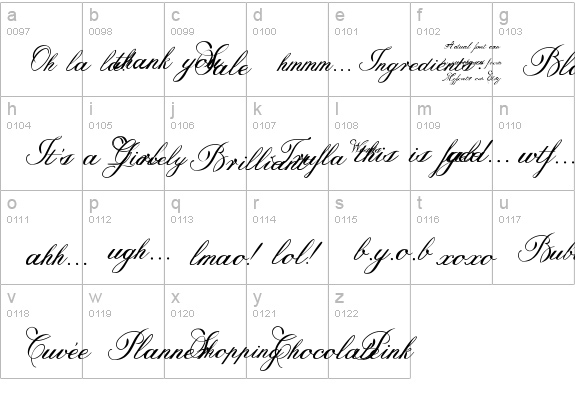 a b c d e f g
0097 0098 0099 0100 0101 0102 0103
Oh la la! thank you Sale hmmm... Ingredients: Actual font can
h i j k l m n
0104 0105 0106 0107 0108 0109 0110
It's a Girl Lovely Brilliant Truffla this is good... wtf...
o p q r s t u
0111 0112 0113 0114 0115 0116 0117
ahh... ugh... lmao! lol! b.y.o.b xoxo
v w x y z
0118 0119 0120 0121 0122
Cuvée Planner Shopping Chocolate Pink